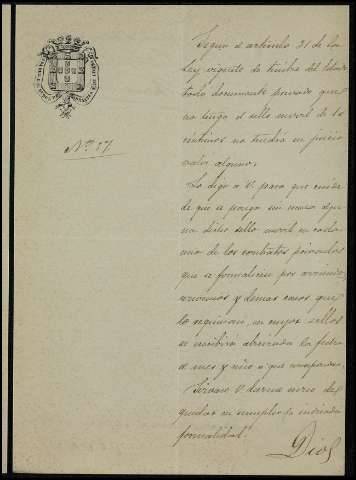 Nº 57
Segun el artículo 31 de la
Ley vigente de timbre del Estado
todo documento privado que
no tenga el sello movil de 10
céntimos no tendrá en juicio
valor alguno.
Lo digo á V. para que cuide
de que se ponga sin excusa algu-
na dicho sello movil en cada
uno de los contratos privados
que se formalicen por arriendo,
y demas casos que
lo requieran, en cuyos sellos
se escribirá abreviada la fecha
el mes y año á que corresponda.
Sirvase V. darme aviso de
quedar en cumplir la indicada
formalidad.
Dios